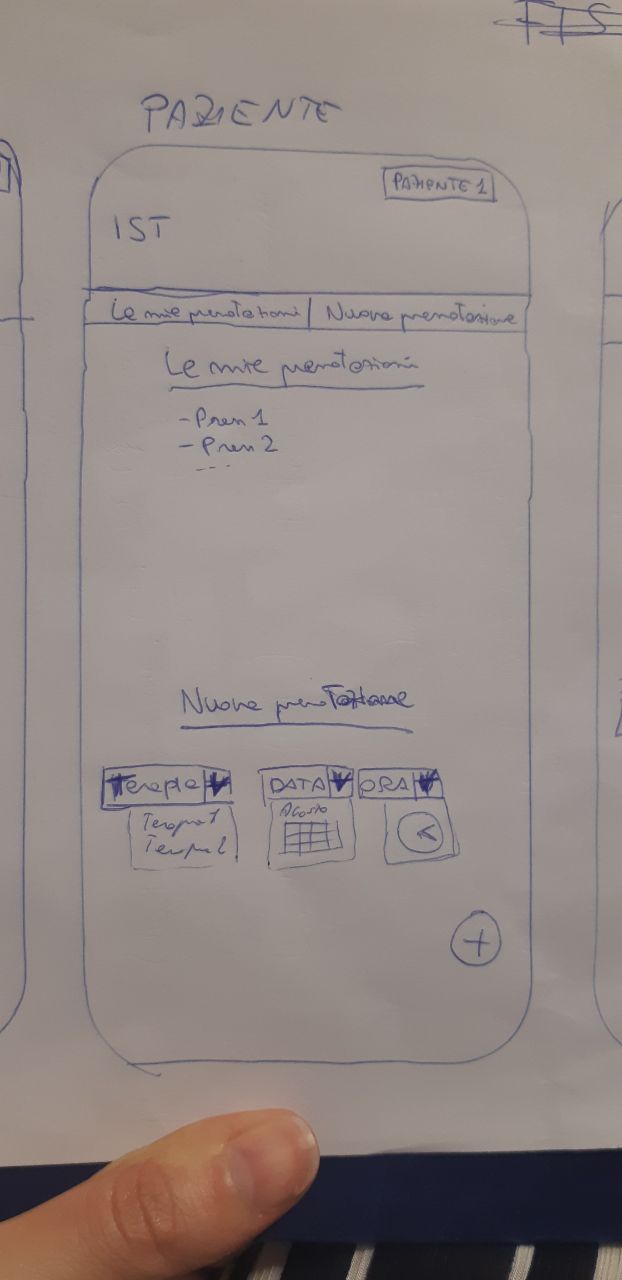 FIS
PAZIENTE
PAZIENTE 1
IST
Le mie prenotazioni | Nuova prenotazione
Le mie prenotazioni
- Pren 1
- Pren 2
---
Nuova prenotazione
Terapia DATA ORA
Agosto
Terapia 1
Terapia 2
+